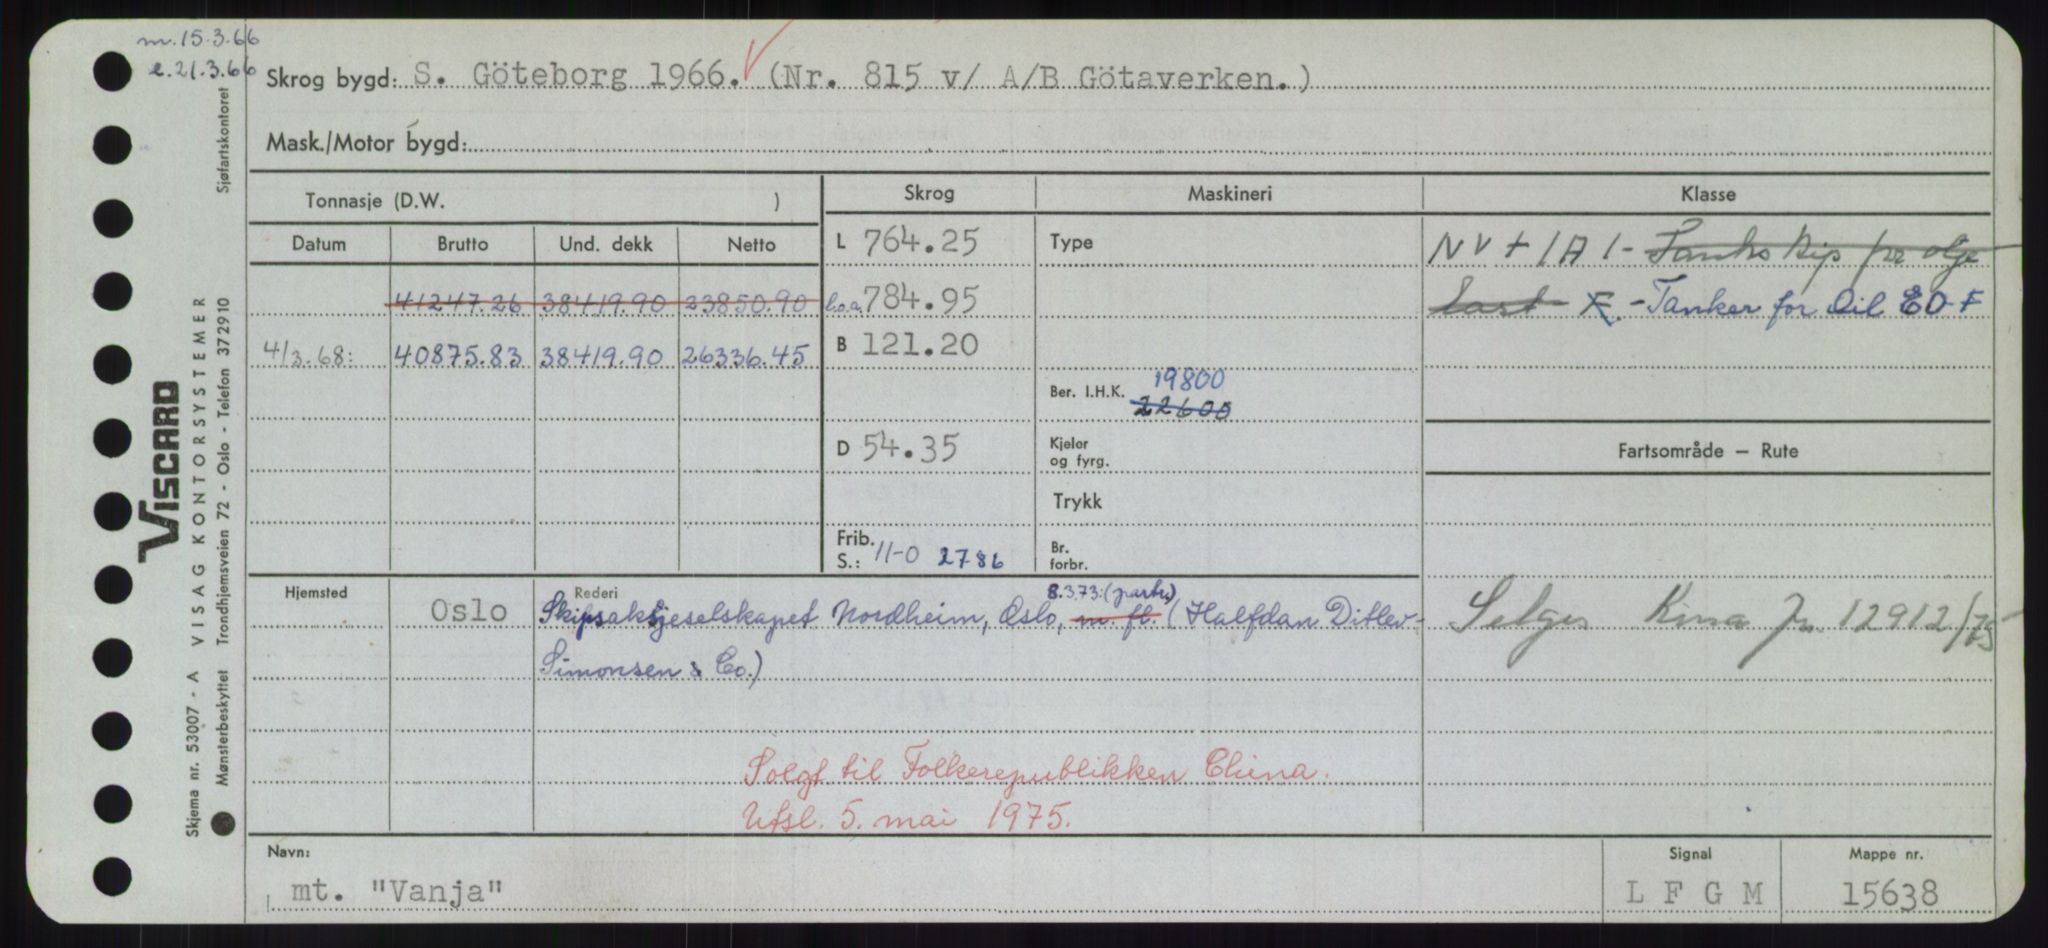 m. 15.3.66
e. 21.3.66
Skrog bygd: S. Göteborg 1966. (Nr. 815 v/ A/B Götaverken.)
Mask./Motor bygd:
Tonnasje (D.W. )
Skrog
Maskineri
Klasse
Datum
Brutto
Und. dekk
Netto
L 764.25
Type
NV + 1A1 - Tankskip for olje
41247.26 38419.90 23850.90
l.o.a. 784.95
last F. - Tanker for Oil EO F
4/3.68: 40875.83 38419.90 26336.45
B 121.20
Ber. I.H.K. 19800
22600
D 54.35
Kjeler
og fyrg.
Fartsområde – Rute
Trykk
Frib.
S.: 11-0 2786
Br.
forbr.
Hjemsted
Oslo
Rederi
8.3.73: (partr.)
Skipsaksjeselskapet Nordheim, Oslo, m. fl. (Halfdan Ditlev-
Simonsen & Co.)
Selges Kina jr. 12912/75
Solgt til Folkerepublikken China.
Utsl. 5. mai 1975.
Navn:
mt. "Vanja"
Signal
L F G M
Mappe nr.
15638
VISCARD
Skjema nr. 53007 - A VISAG KONTORSYSTEMER
Mønsterbeskyttet Trondhjemsveien 72 - Oslo - Telefon 372910 Sjøfartskontoret